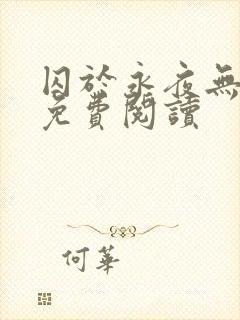 囚於永夜無
免費閱讀
何華